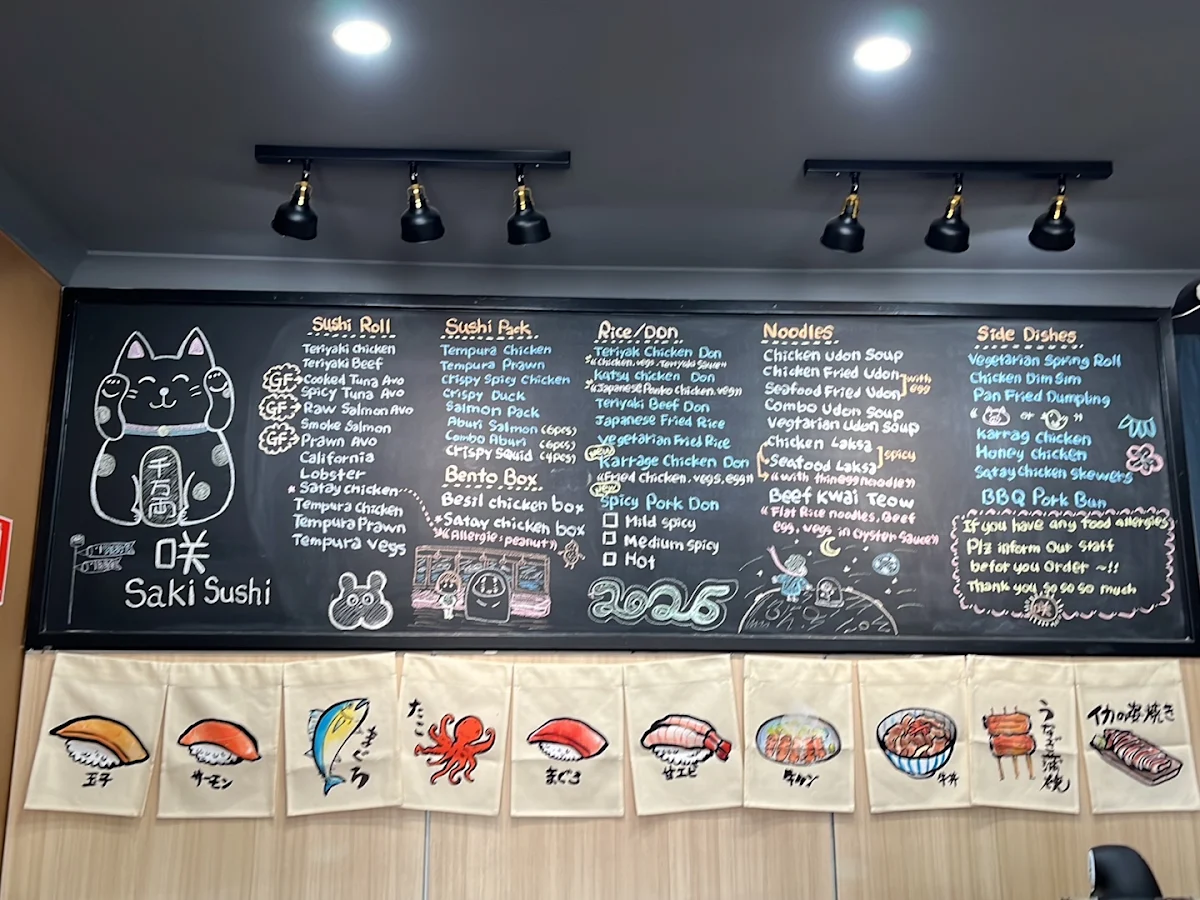 千万両
咲
Saki Sushi
Sushi Roll
Teriyaki Chicken
Teriyaki Beef
GF Cooked Tuna Avo
Spicy Tuna Avo
GF Raw Salmon Avo
Smoke Salmon
GF Prawn Avo
California
Lobster
* Satay Chicken
Tempura Chicken
Tempura Prawn
Tempura Vegs
Sushi Pack
Tempura Chicken
Tempura Prawn
Crispy Spicy Chicken
Crispy Duck
Salmon Pack
Aburi Salmon (6pcs)
Combo Aburi (6pcs)
Crispy Squid (4pcs)
Bento Box
Besil chicken box
*Satay chicken box
"Allergie : peanut"
Rice/Don
Teriyak Chicken Don
"Chicken, vegs. Teriyaki Sauce"
Katsu Chicken Don
"Japanese Panko Chicken. vegs"
Teriyaki Beef Don
Japanese Fried Rice
Vegetarian Fried Rice
new Karrage Chicken Don
"Fried Chicken. vegs. eggs"
new
Spicy Pork Don
Mild spicy
Medium Spicy
Hot
2026
Noodles
Chicken Udon Soup
Chicken Fried Udon
Seafood Fried Udon
with egg
Combo Udon Soup
Vegtarian Udon Soup
Chicken Laksa
Seafood Laksa
spicy
"with thinegg noodle"
Beef Kwai Teow
"Flat Rice noodles, Beef
egg, vegs in Oyster Sauce"
Side Dishes
Vegetarian Spring Roll
Chicken Dim Sim
Pan Fried Dumpling
" or "
Karrag Chicken
Honey Chicken
Satay Chicken Skewers
BBQ Pork Bun
If you have any food allergies
Plz inform Our Staff
befor you Order ~!!
Thank you so so so much
咲
玉子
サーモン
まぐろ
たこ
まぐろ
甘エビ
牛タン
牛丼
うなぎ蒲焼
イカの姿焼き